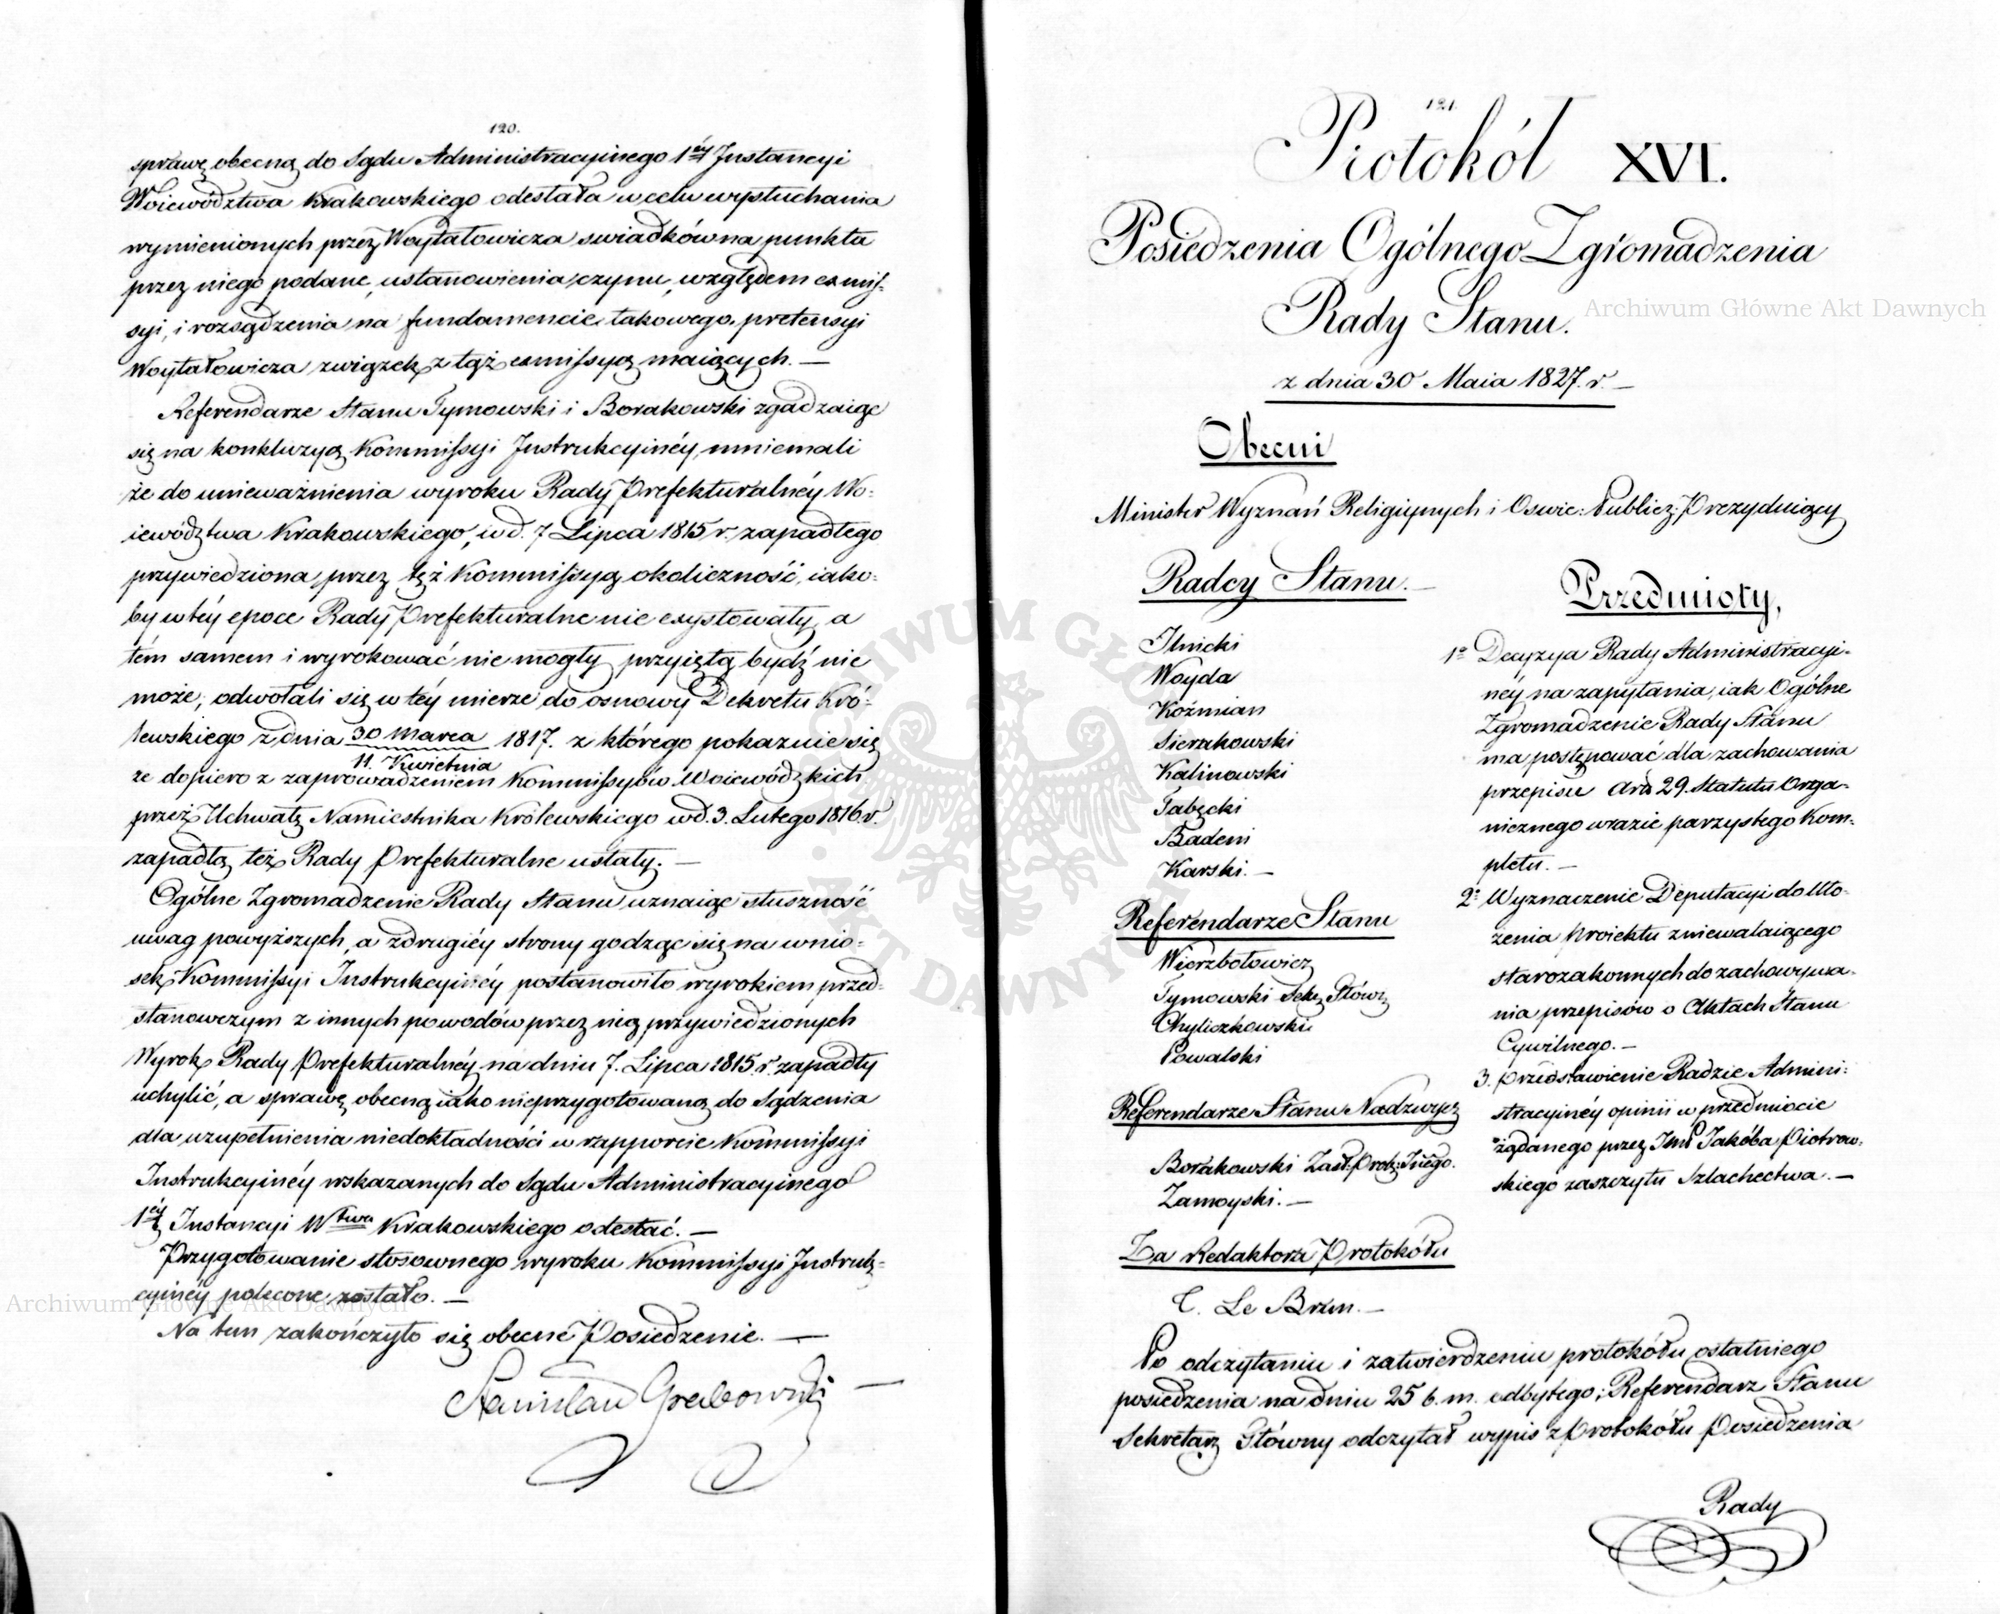 120.
sprawę obecną do Sądu Administracyinego 1éy Instancyi
Woiewództwa Krakowskiego odesłała w celu wysłuchania
wymienionych przez Woytałowicza swiadków na punkta
przez niego podane, ustanowienia czynu, względem exmis-
syi, i rozsądzenia na fundamencie takowego, pretensyi
Woytałowicza związek z tąż exmissyą maiących. —
Referendarze Stanu Tymowski i Borakowski zgadzaiąc
się na konkluzyą Kommissyi Instrukcyinéy, mniemali
że do unieważnienia wyroku Rady Prefekturalnéy Wo-
iewództwa Krakowskiego, w d. 7 Lipca 1815 r. zapadłego
przywiedziona przez tęż Kommissyą okoliczność, iako-
by w téy epoce Rady Prefekturalne nie exystowały, a
tém samem i wyrokować nie mogły przyiętą bydź nie
może; odwołali się w téy mierze do osnowy Dekretu Kró-
lewskiego z dnia 30 Marca / 11. Kwietnia 1817. z którego pokazuie się
że dopiero z zaprowadzeniem Kommissyów Woiewódzkich
przez Uchwałę Namiestnika Królewskiego w d. 3. Lutego 1816. r.
zapadłą też Rady Prefekturalne ustały. —
Ogólne Zgromadzenie Rady Stanu uznaiąc słuszność
uwag powyższych, a z drugiéy strony godząc się na wnio-
sek Kommissyi Instrukcyinéy postanowiło wyrokiem przed-
stanowczym z innych powodów przez nią przywiedzionych
Wyrok Rady Prefekturalnéy na dniu 7. Lipca 1815. r. zapadły
uchylić, a sprawę obecną iako nieprzygotowaną do Sądzenia
dla uzupełnienia niedokładności w rapporcie Kommissyi
Instrukcyinéy wskazanych do Sądu Administracyinego
1éy Instancyi Wtwa Krakowskiego odesłać. —
Przygotowanie stosownego wyroku Kommissyi Instruk-
cyinéy polecone zostało. —
Na tem zakończyło się obecne Posiedzenie. —
Stanisław Grabowski —
121.
Protokół XVI.
Posiedzenia Ogólnego Zgromadzenia
Rady Stanu.
z dnia 30 Maia 1827. r. —
Obecni
Minister Wyznań Religiynych i Oswie: Publicz: Prezyduiący
Radcy Stanu. —
Ilnicki
Woyda
Koźmian
Sierakowski
Kalinowski
Tabęcki
Badeni
Karski. —
Referendarze Stanu
Wierzbołowicz
Tymowski Sekr. Główy
Chyliczkowski
Powalski
Referendarze Stanu Nadzwycz
Borakowski Zast: Prok: Jnego.
Zamoyski. —
Za Redaktora Protokółu
C. Le Brun. —
Przedmioty,
1o Decyzya Rady Administracyi-
néy na zapytania, iak Ogólne
Zgromadzenie Rady Stanu
ma postępować dla zachowania
przepisu Art: 29. Statutu Orga-
nicznego w razie parzystego Kom-
pletu. —
2o Wyznaczenie Deputacyi do Uło-
żenia Proiektu zniewalaiącego
starozakonnych do zachowywa-
nia przepisów o Aktach Stanu
Cywilnego. —
3. Przedstawienie Radzie Admini-
stracyinéy opinii w przedmiocie
żądanego przez Jmć P Jakóba Piotrow-
skiego zaszczytu Szlachectwa. —
Po odczytaniu i zatwierdzeniu protokółu ostatniego
posiedzenia na dniu 25 b. m. odbytego; Referendarz Stanu
Sekretarz Główny odczytał wypis z Protokółu Posiedzenia
Rady
Archiwum Główne Akt Dawnych
Archiwum Główne Akt Dawnych
ARCHIWUM GŁÓWNE AKT DAWNYCH